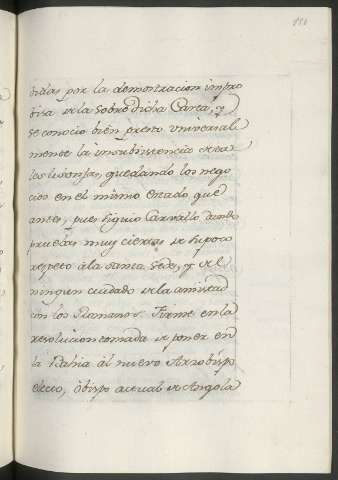 bidas por la demostracion impro
bisa de la sobre dicha Carta, y
se conocio bien presto universal
mente la insubsistencia de ta
les lisonjas, quedando los nego
cios en el mismo estado que
antes, pues siguio Carvallo dando
pruebas muy ciertas de su poco
respeto à la Santa Sede, y del
ningun cuidado de la amistad
con los Romanos. Firme en la
resolucion tomada de poner en
la Bahia àl nuevo Arzobispo
electo, Obispo actual de Angola